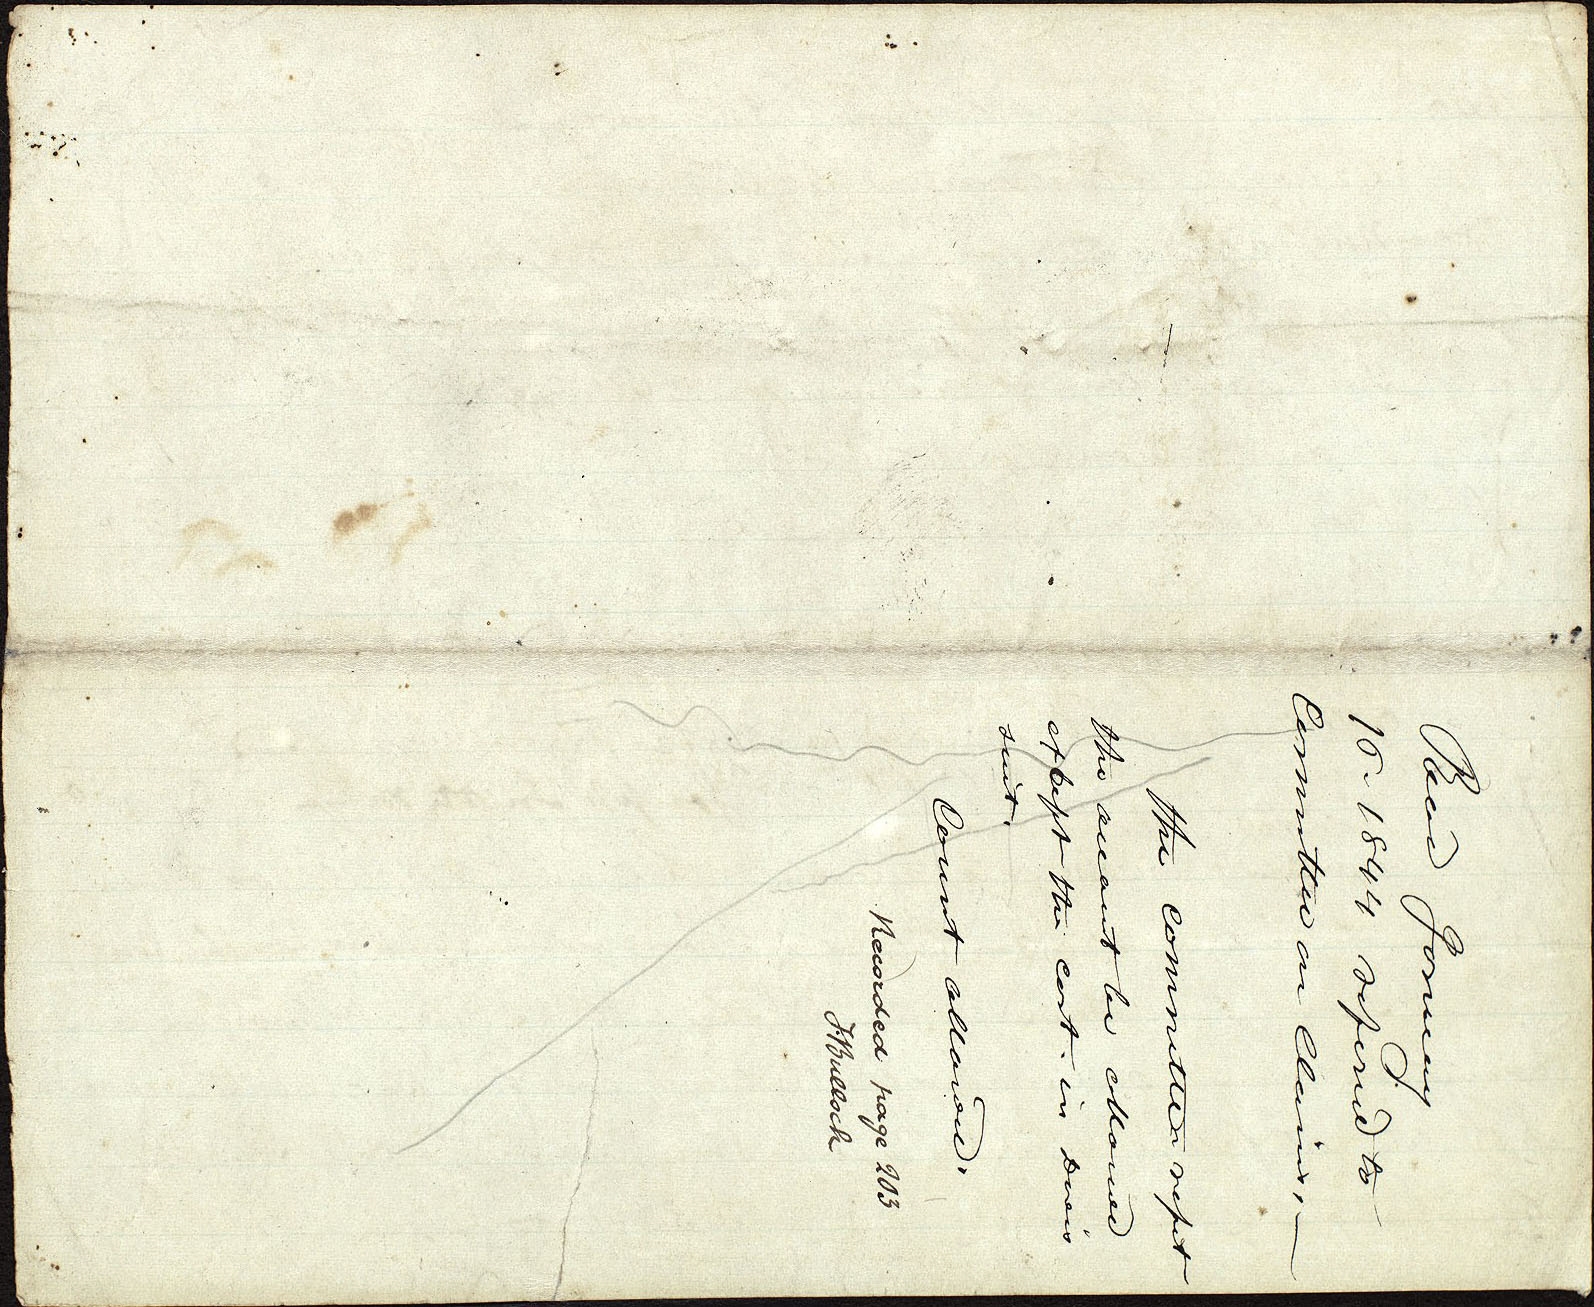 Recd January
15. 1844 referred to
Committee on Claims,—
The committee rept
the account be allowed
except the cost in
suit.
Count allowed.
Recorded page 203
J. Bulloch